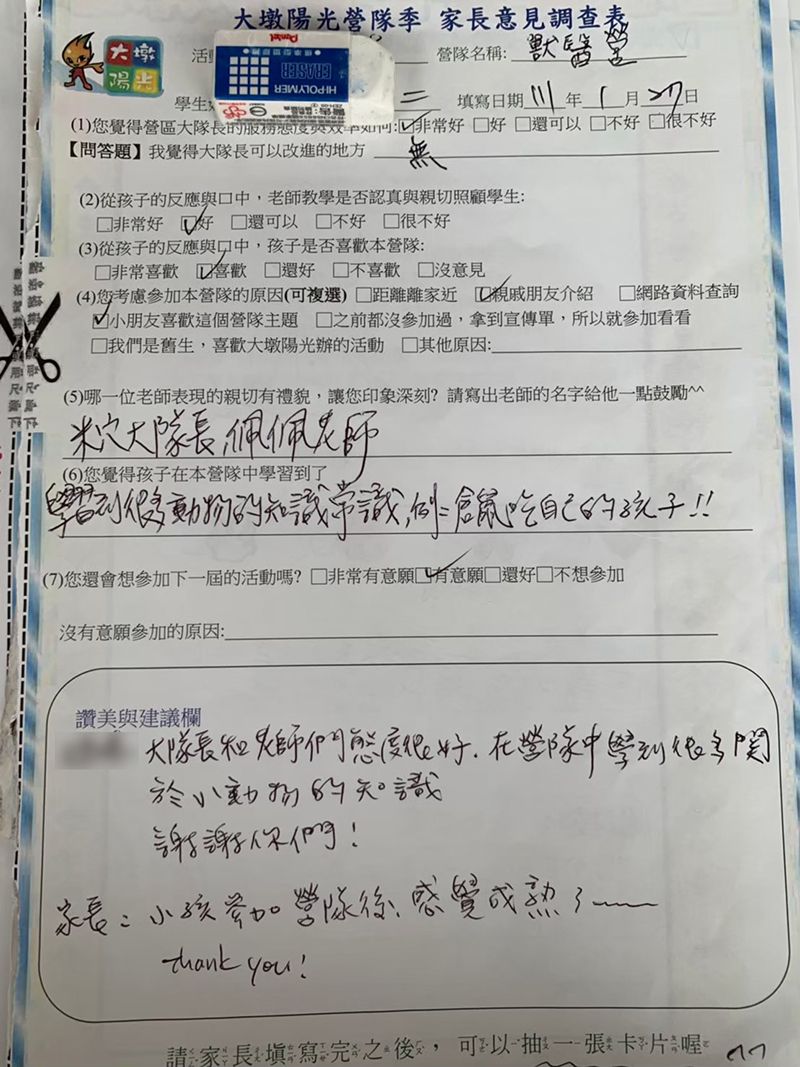 大墩陽光營隊季 家長意見調查表
大墩
陽光
活 營隊名稱: 獸醫營
Pentel
HI-POLYMER
ERASER
學生 二 填寫日期 111 年 1 月 27 日
(1)您覺得營區大隊長的服務態度與效率如何:☑非常好 □好 □還可以 □不好 □很不好
【問答題】我覺得大隊長可以改進的地方 無
(2)從孩子的反應與口中，老師教學是否認真與親切照顧學生:
□非常好 ☑好 □還可以 □不好 □很不好
(3)從孩子的反應與口中，孩子是否喜歡本營隊:
□非常喜歡 ☑喜歡 □還好 □不喜歡 □沒意見
(4)您考慮參加本營隊的原因(可複選) □距離離家近 ☑親戚朋友介紹 □網路資料查詢
☑小朋友喜歡這個營隊主題 □之前都沒參加過，拿到宣傳單，所以就參加看看
□我們是舊生，喜歡大墩陽光辦的活動 □其他原因:
(5)哪一位老師表現的親切有禮貌，讓您印象深刻? 請寫出老師的名字給他一點鼓勵^^
米穴大隊長,佩佩老師
(6)您覺得孩子在本營隊中學習到了
學習到很多動物的知識常識,例=倉鼠吃自己的孩子!!
(7)您還會想參加下一屆的活動嗎? □非常有意願☑有意願□還好□不想參加
沒有意願參加的原因:
讚美與建議欄
大隊長和老師們態度很好. 在營隊中學到很多關
於小動物的知識
謝謝你們!
家長: 小孩參加營隊後、感覺成熟了~~
thank you!
請家長填寫完之後，可以抽一張卡片喔